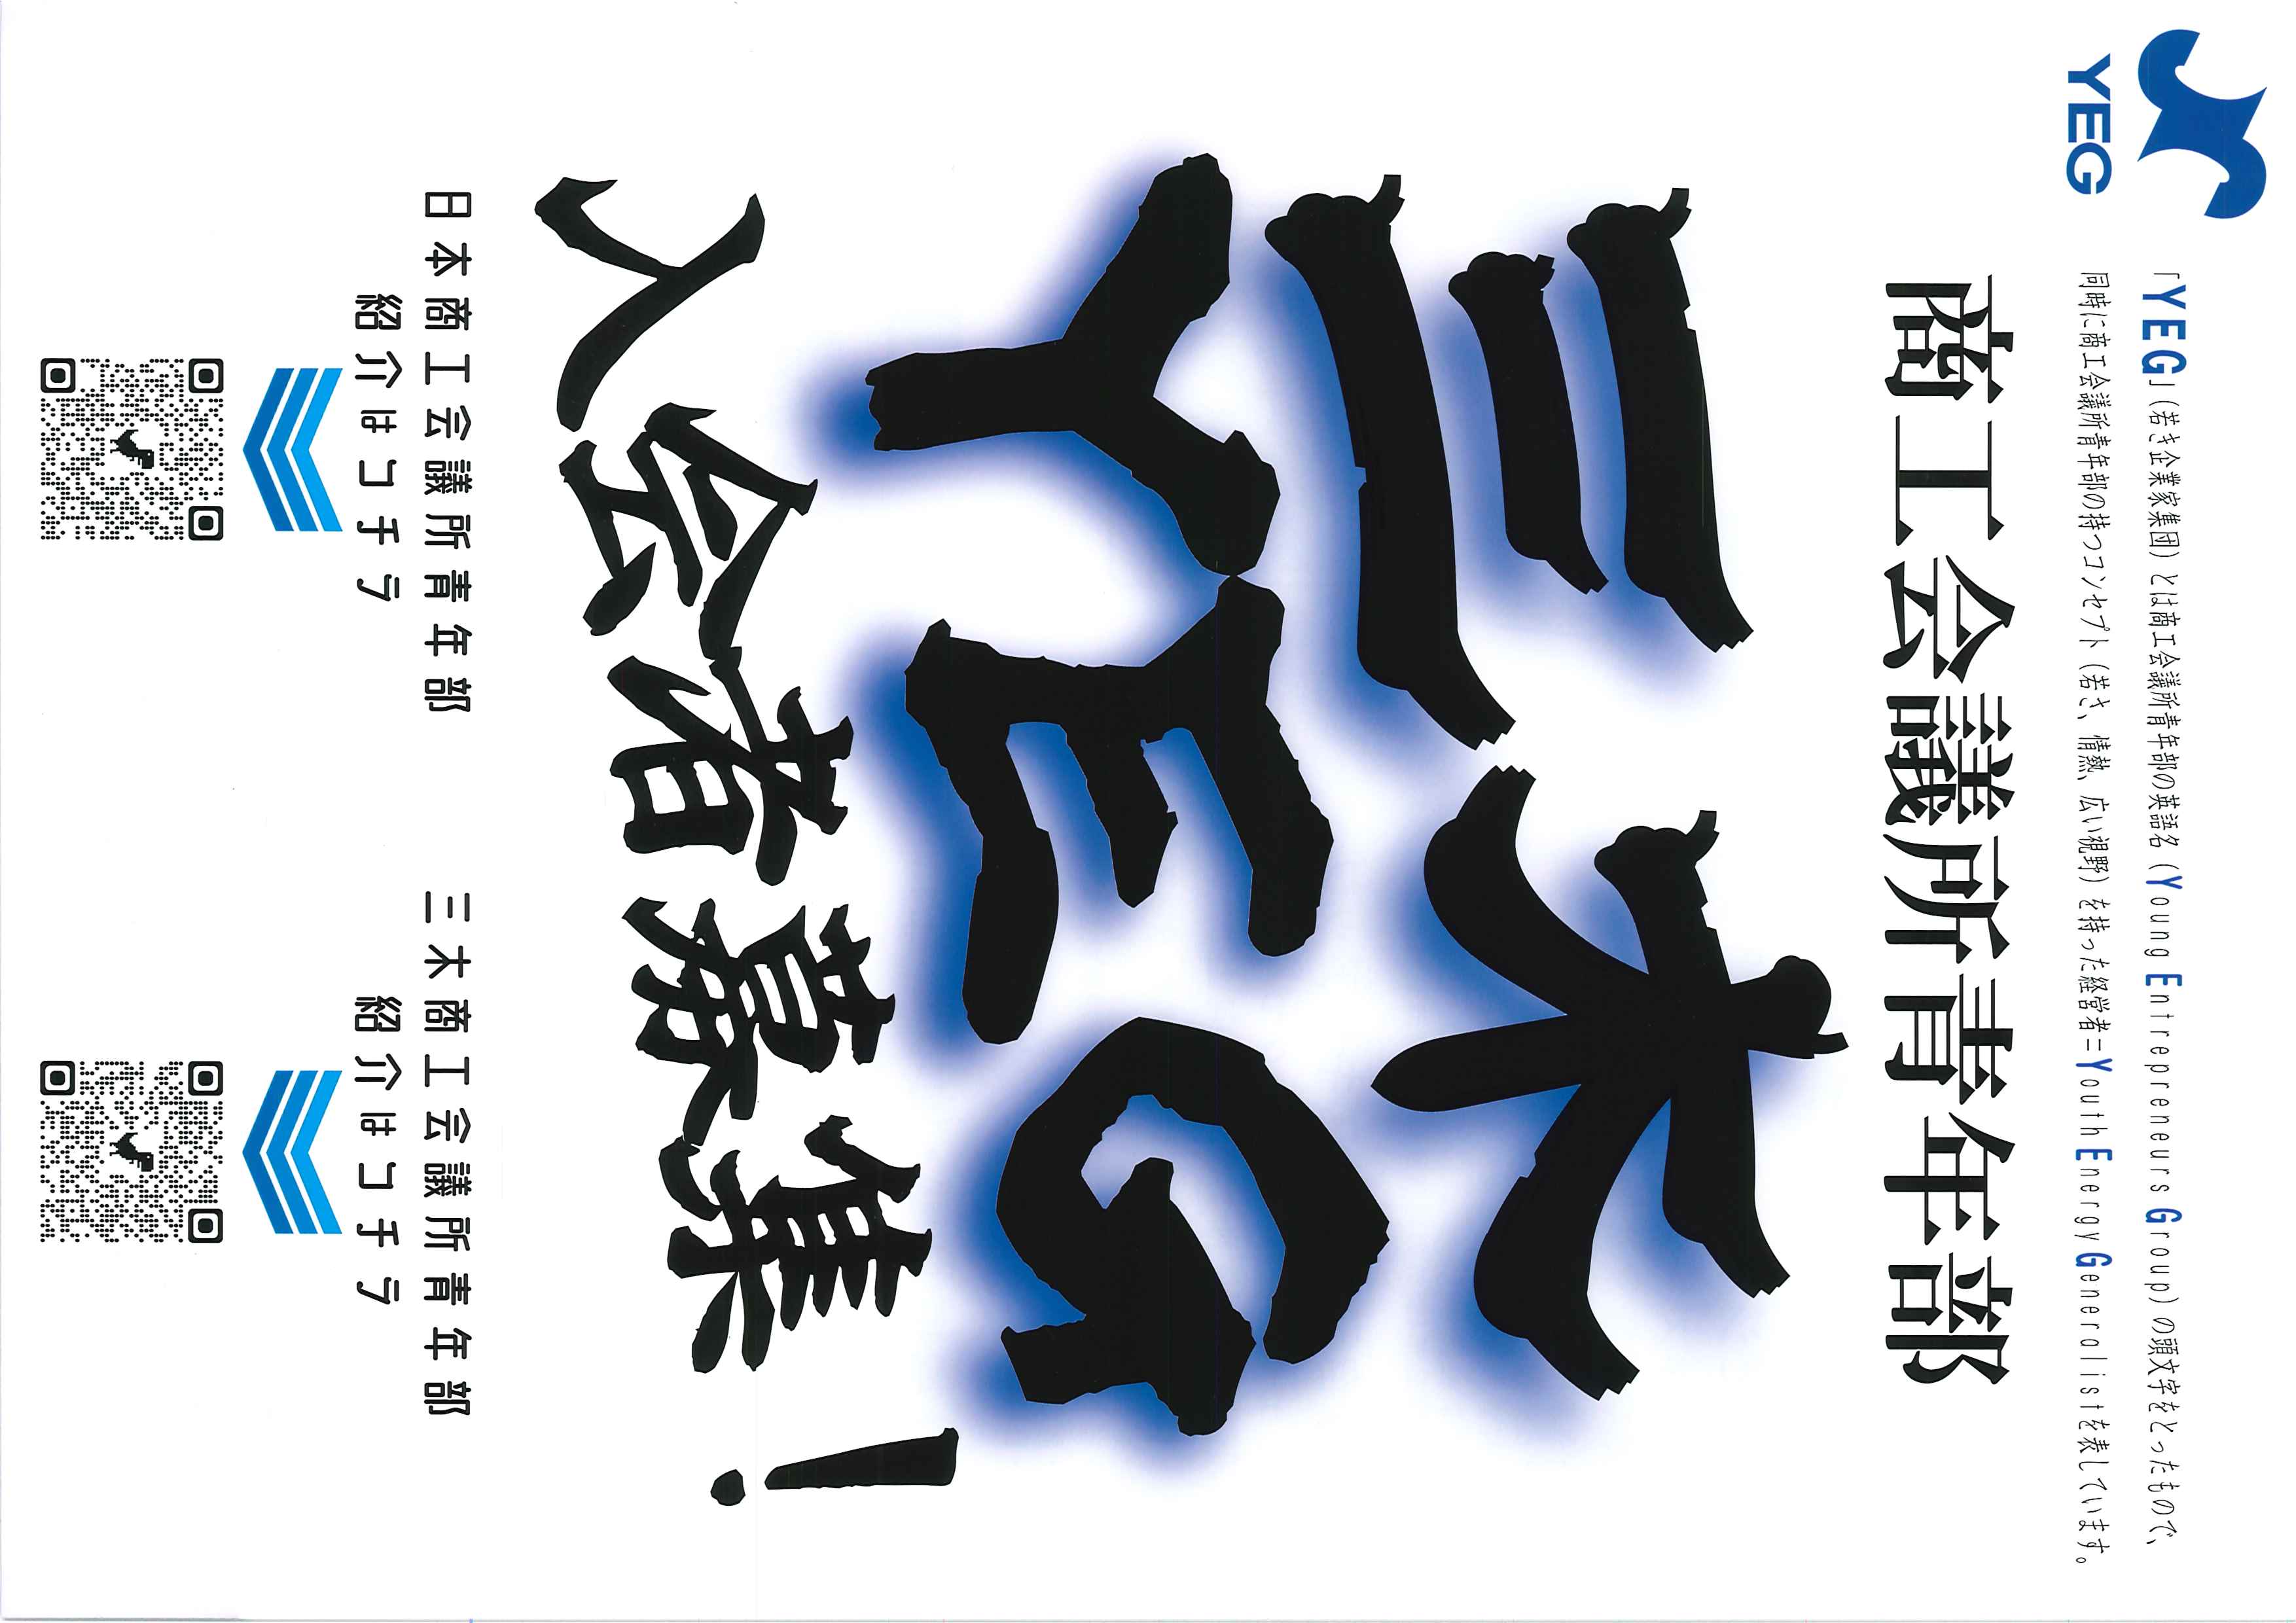 YEG
「YEG」(若き企業家集団)とは商工会議所青年部の英語名(Young Entrepreneurs Group)の頭文字をとったもので、
同時に商工会議所青年部の持つコンセプト(若さ、情熱、広い視野)を持った経営者=Youth Energy Generalistを表しています。
商工会議所青年部
三木
YEG
入会者募集!
日本商工会議所青年部
紹介はコチラ
三木商工会議所青年部
紹介はコチラ